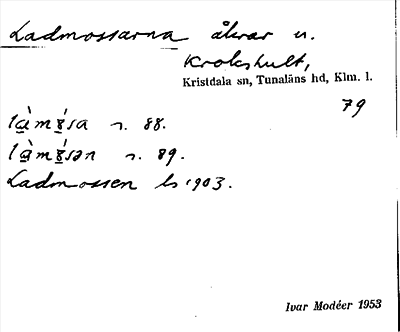 Ladmossarna åkrar u.
Krokshult,
Kristdala sn, Tunaläns hd, Klm. l.
79
là̤mɤ̤́sa n. 88.
là̤mɤ̤́sən n. 89.
Ladmossen ls 1903.
Ivar Modéer 1953